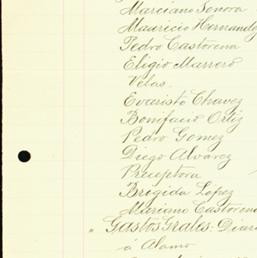 Marciano Sonora
Mauricio Hernandez
Pedro Castorena
Eligio Marrero
Velas.
Evaristo Chavez
Bonifacio Ortiz
Pedro Gomez
Diego Alvarez
Preceptora
Brigida Lopez
Mariano Castorena
" Gastos Grales: Diario
á Alamo